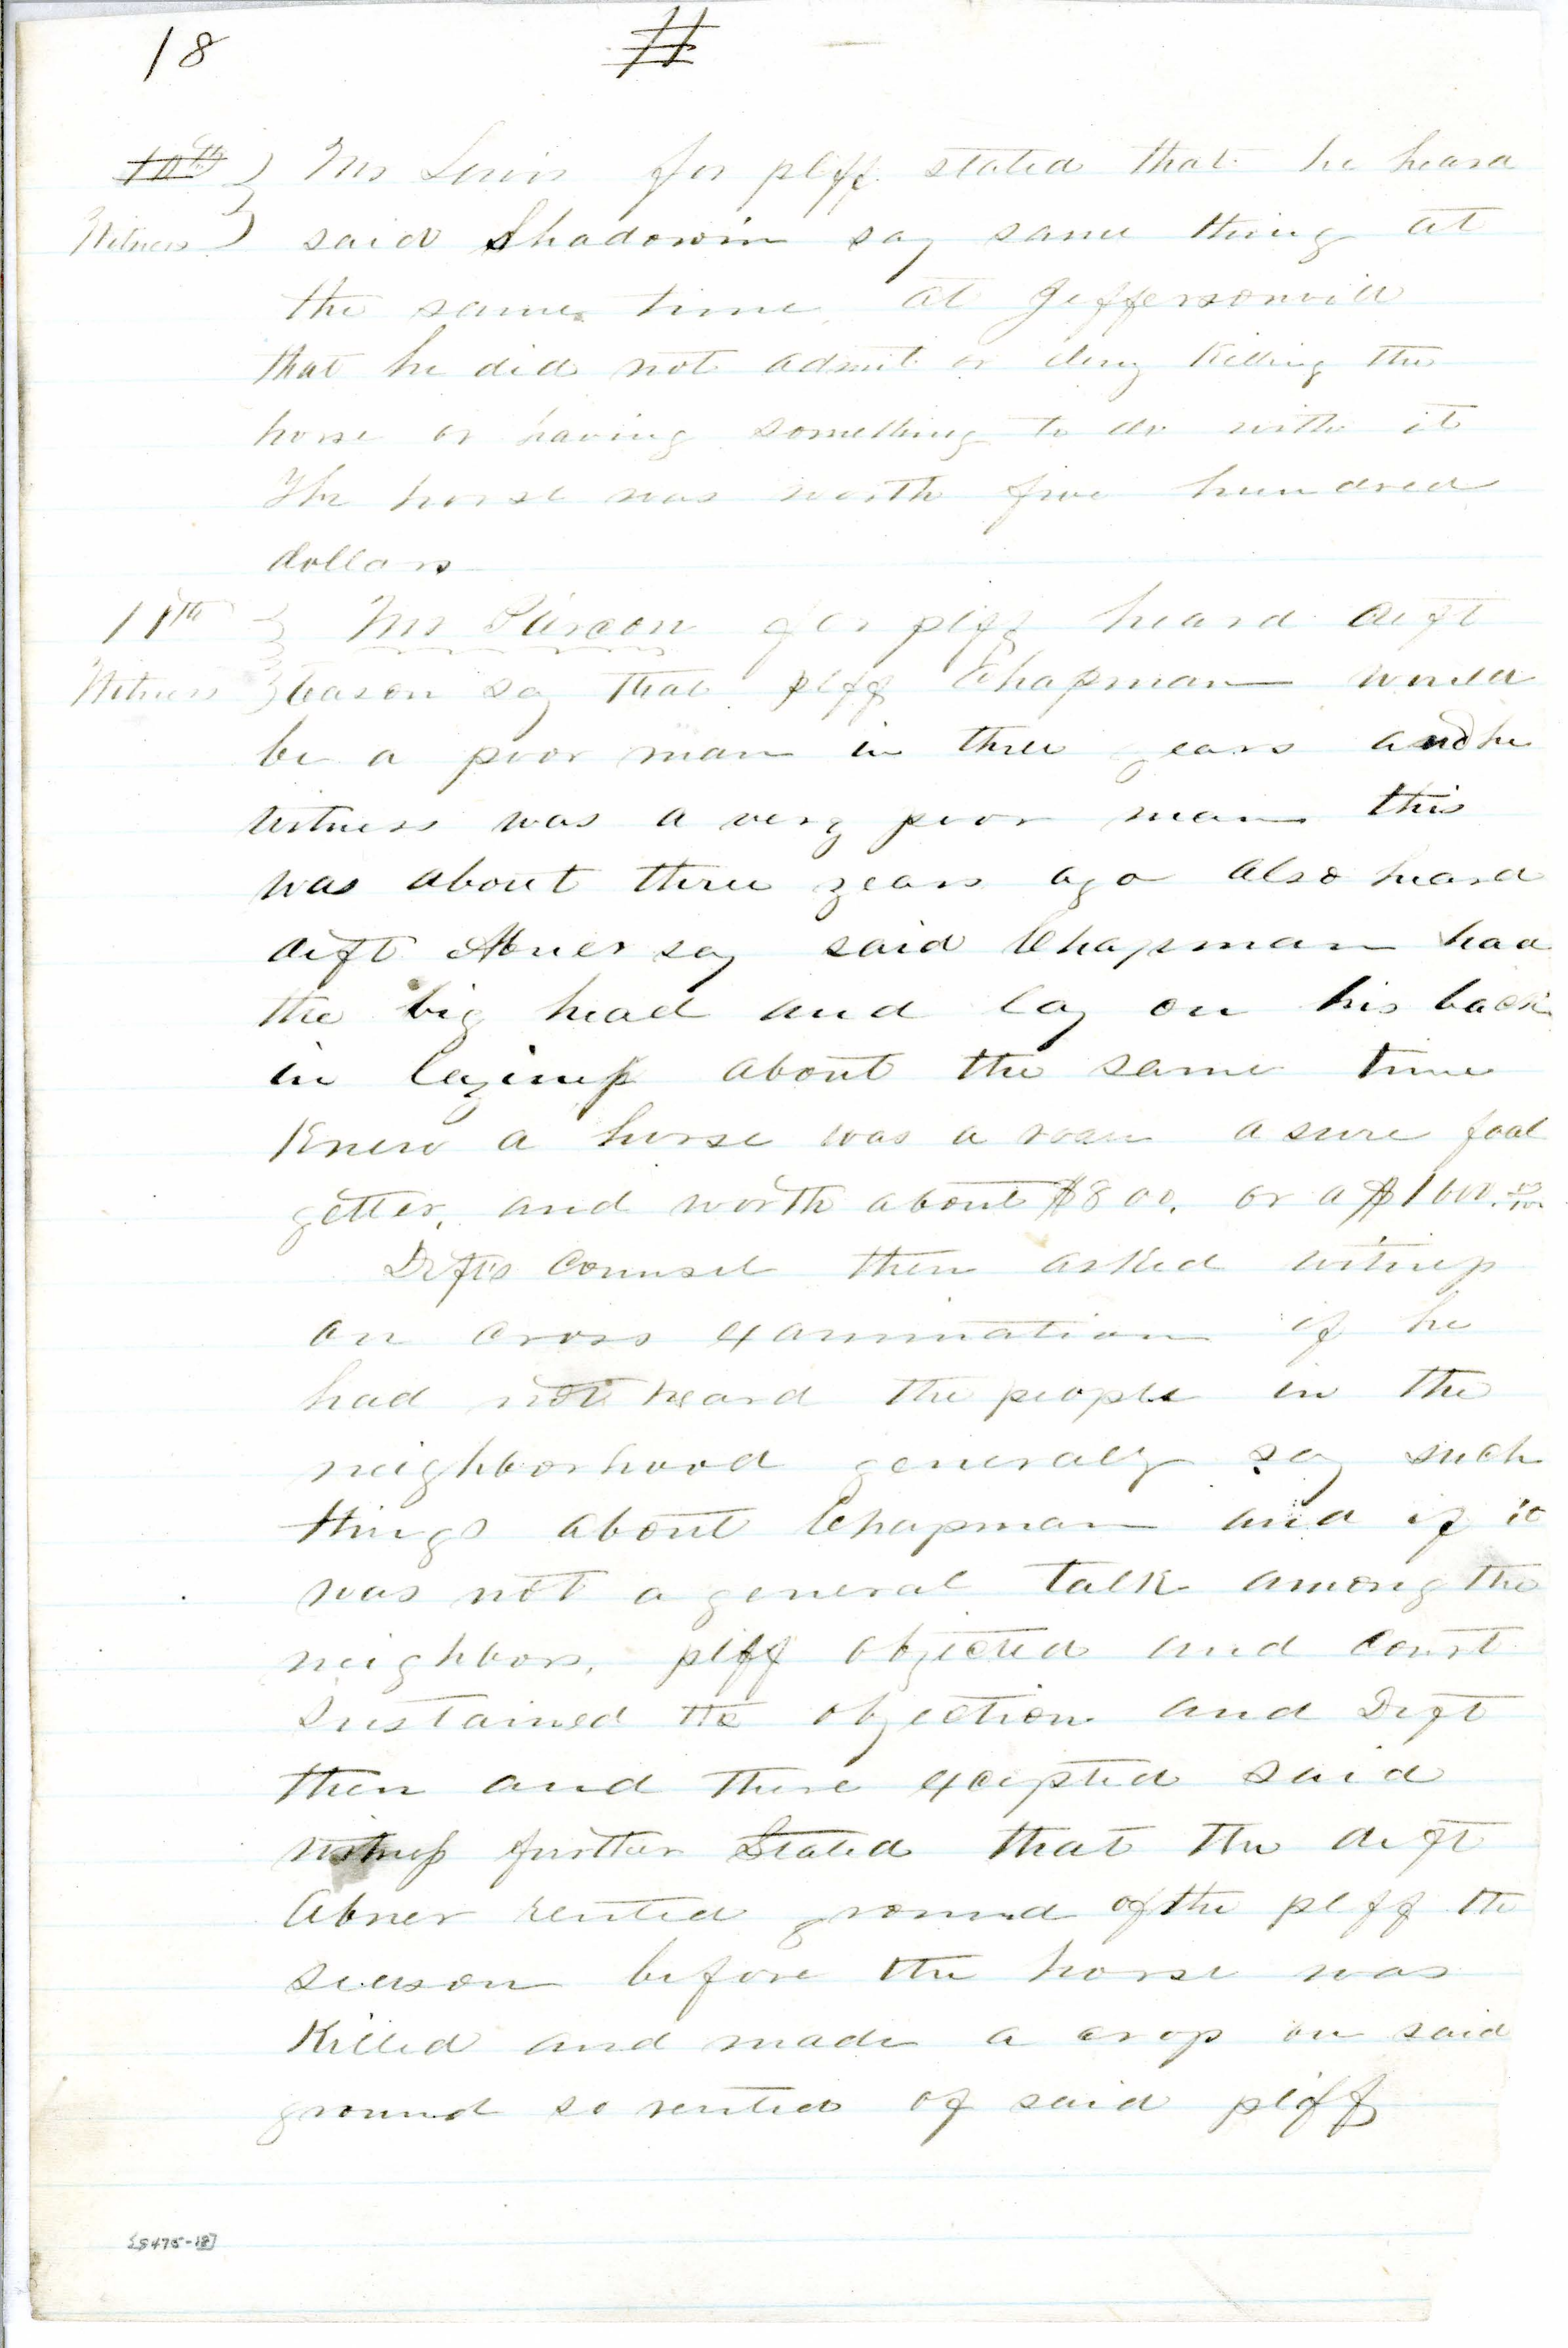 18
10th } Mr Lewis for plff. stated that he heard
Witness } said Shadowin say same thing at
the same time at Jeffersonvill
that he did not admit or deny Killing the
horse or having something to do with it
The horse was worth five hundred
dollars
11th } Mr Pierson for plff heard deft
Witness } Cason say that plff Chapman would
be a poor man in three years and he
witness was a very poor man this
was about three years ago also heard
deft Abner say said Chapman had
the big head and lay on his back
in
about the same time
Knew a horse was a a sure foal
getter, and worth about $800. or a $1000.
Defts Counsel then asked witness
on cross examination if he
had not heard the people in the
neighborhood generaly say such
things about Chapman and if it
was not a general talk among the
neighbors, plff objected and Court
Sustained the objection and Deft
then and there excepted said
witness further Stated that the deft
Abner rented ground of the plff the
season before the horse was
Killed and made a crop on said
ground so rented of said plff
[5475-18]